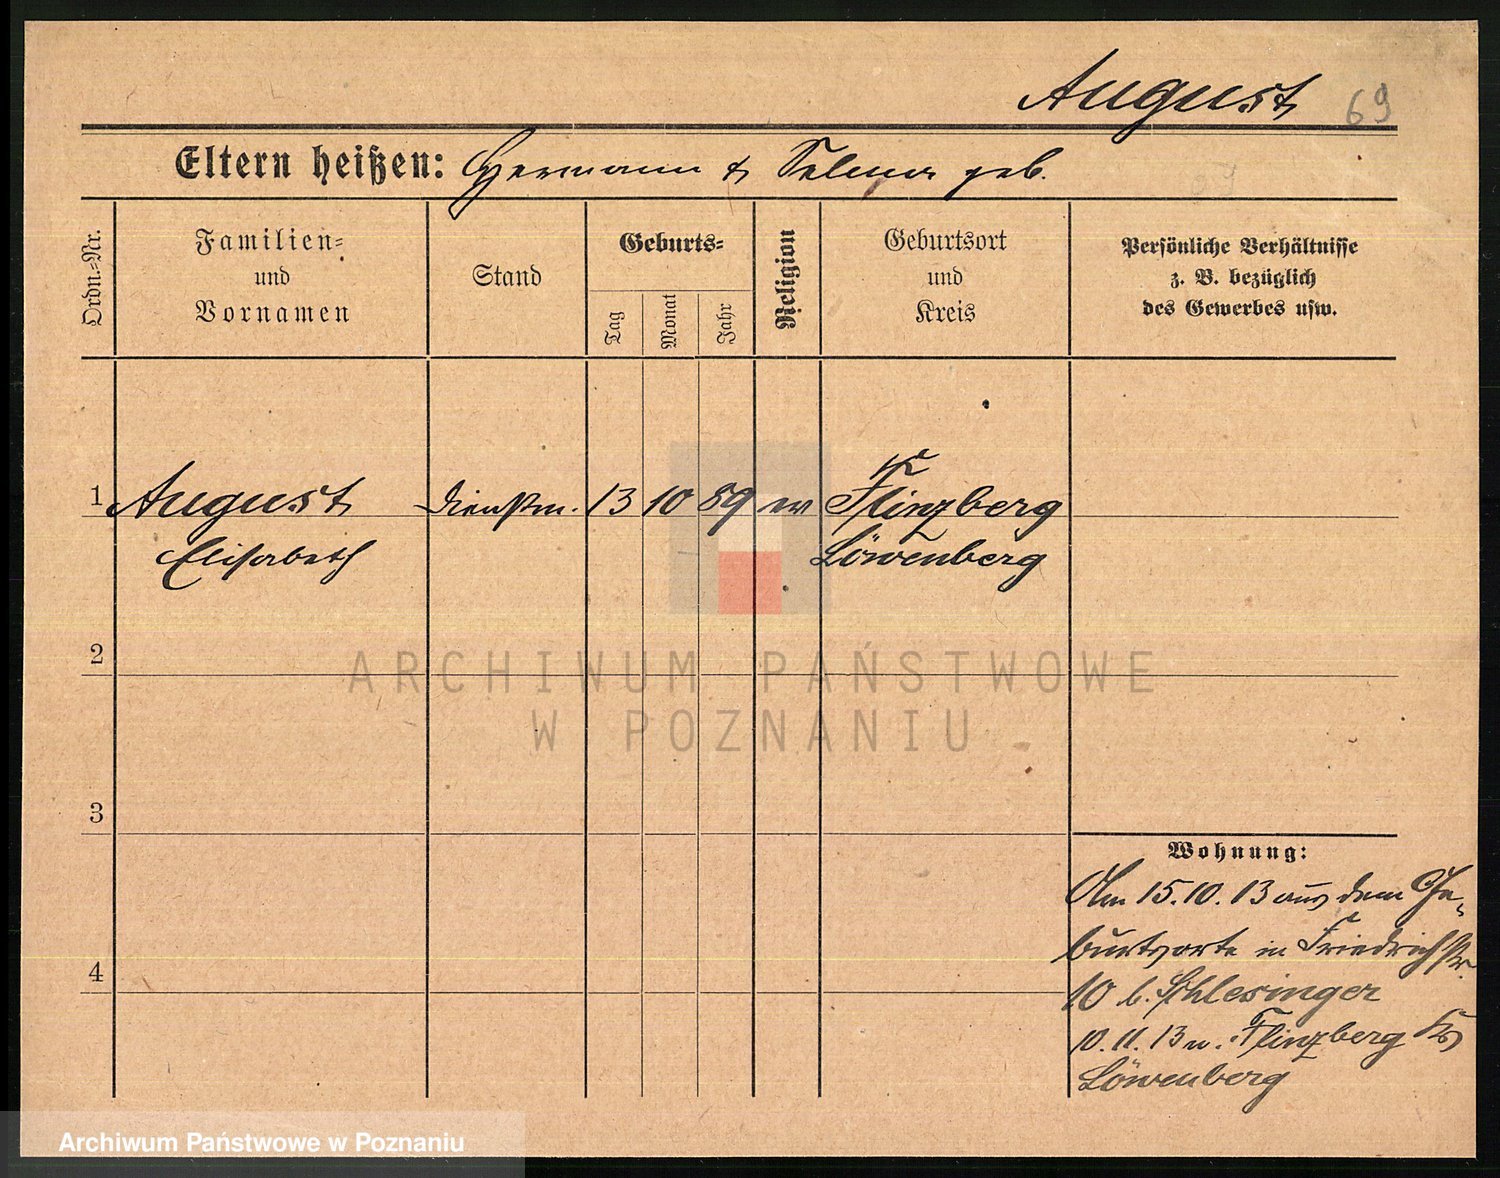 August 69
Eltern heißen: Hermann & Selma geb.
Ordn.-Nr.
Familien-
und
Vornamen
Stand
Geburts-
Tag
Monat
Jahr
Religion
Geburtsort
und
Kreis
Persönliche Verhältnisse
z. B. bezüglich
des Gewerbes usw.
1 August Dienstm. 13 10 89 ev Flinzberg
Elisabeth Löwenberg
2
3
4
Wohnung:
Am 15.10.13 aus dem Ge-
burtsorte in Friedrichstr.
10 b. Schlesinger
10.11.13 n. Flinzberg Krs
Löwenberg
ARCHIWUM PAŃSTWOWE
W POZNANIU
Archiwum Państwowe w Poznaniu